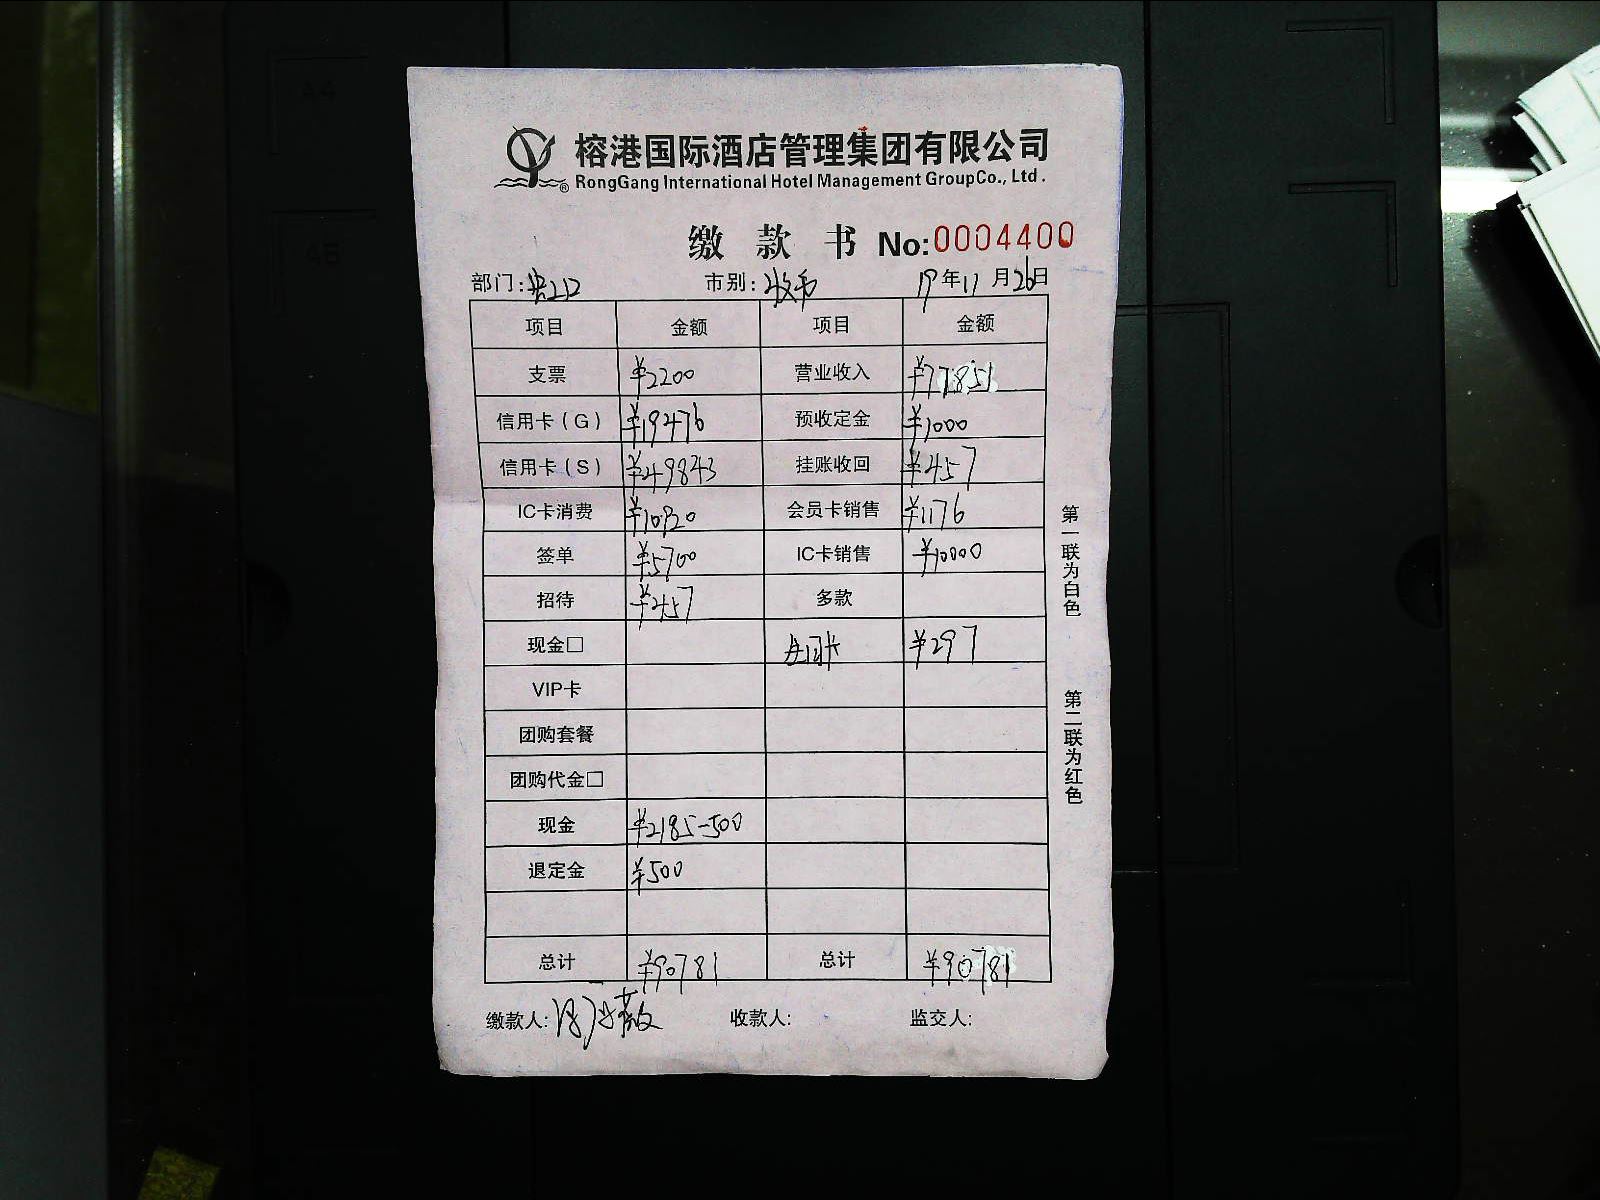 榕港国际酒店管理集团有限公司
® RongGang International Hotel Management GroupCo., Ltd.
缴 款 书 No:0004400
部门: 市别: 19年11月26日
项目 金额 项目 金额
支票 ¥2200 营业收入 ¥77851
信用卡(G) ¥19476 预收定金 ¥1000
信用卡(S) ¥49843 挂账收回 ¥457
IC卡消费 ¥10920 会员卡销售 ¥1176
签单 ¥5700 IC卡销售 ¥10000
招待 ¥457 多款
现金□ ¥297
VIP卡
团购套餐
团购代金□
现金 ¥2185-500
退定金 ¥500
总计 ¥90781 总计 ¥90781
缴款人: 收款人: 监交人:
第一联为白色
第二联为红色
A4